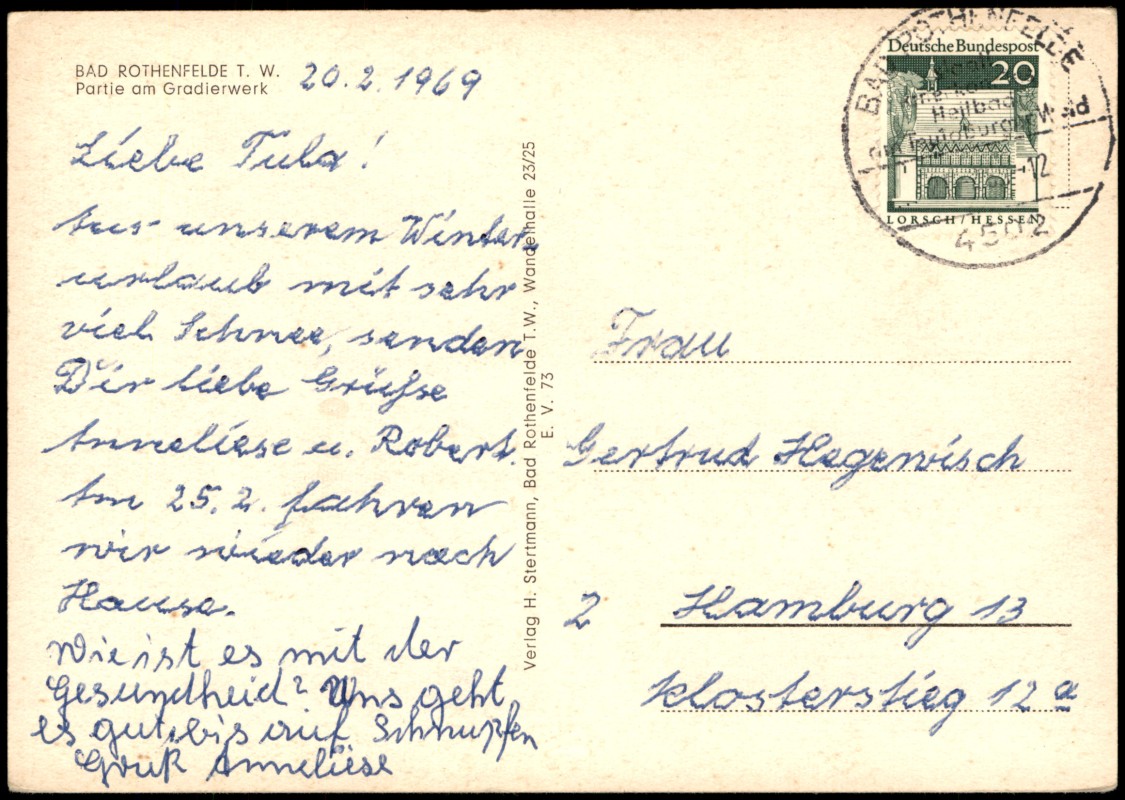 BAD ROTHENFELDE T. W.
Partie am Gradierwerk
20.2.1969
Liebe Tula!
Aus unserem Winter
urlaub mit sehr
viel Schnee, senden
Dir liebe Grüße
Anneliese u. Robert.
Am 25.2. fahren
wir wieder nach
Hause.
Wie ist es mit der
Gesundheid? Uns geht
es gut, bis auf Schnupfen
Gruß Anneliese
Verlag H. Stertmann, Bad Rothenfelde T.W., Wandelhalle 23/25
E. V. 73
BAD ROTHENFELDE
Heilbad
Teutoburger Wald
-12
4502
Deutsche Bundespost
20
LORSCH/HESSEN
Frau
Gertrud Hegewisch
2 Hamburg 13
Klosterstieg 12 a